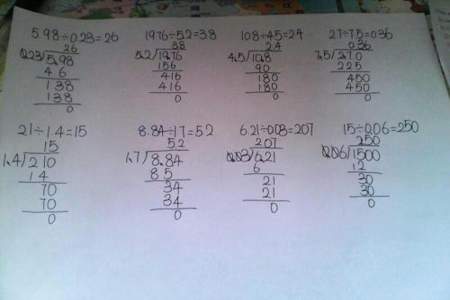 5.98÷0.23=26
26
0.23 5.98
46
138
138
0
19.76÷5.2=3.8
3.8
5.2 19.76
156
416
416
0
10.8÷4.5=2.4
2.4
4.5 10.8
90
180
180
0
2.7÷7.5=0.36
0.36
7.5 2.7.0
225
450
450
0
21÷1.4=15
15
1.4 210
14
70
70
0
8.84÷1.7=5.2
5.2
1.7 8.84
85
34
34
0
6.21÷0.03=207
207
0.03 6.21
6
21
21
0
15÷0.06=250
250
0.06 1500
12
30
30
0